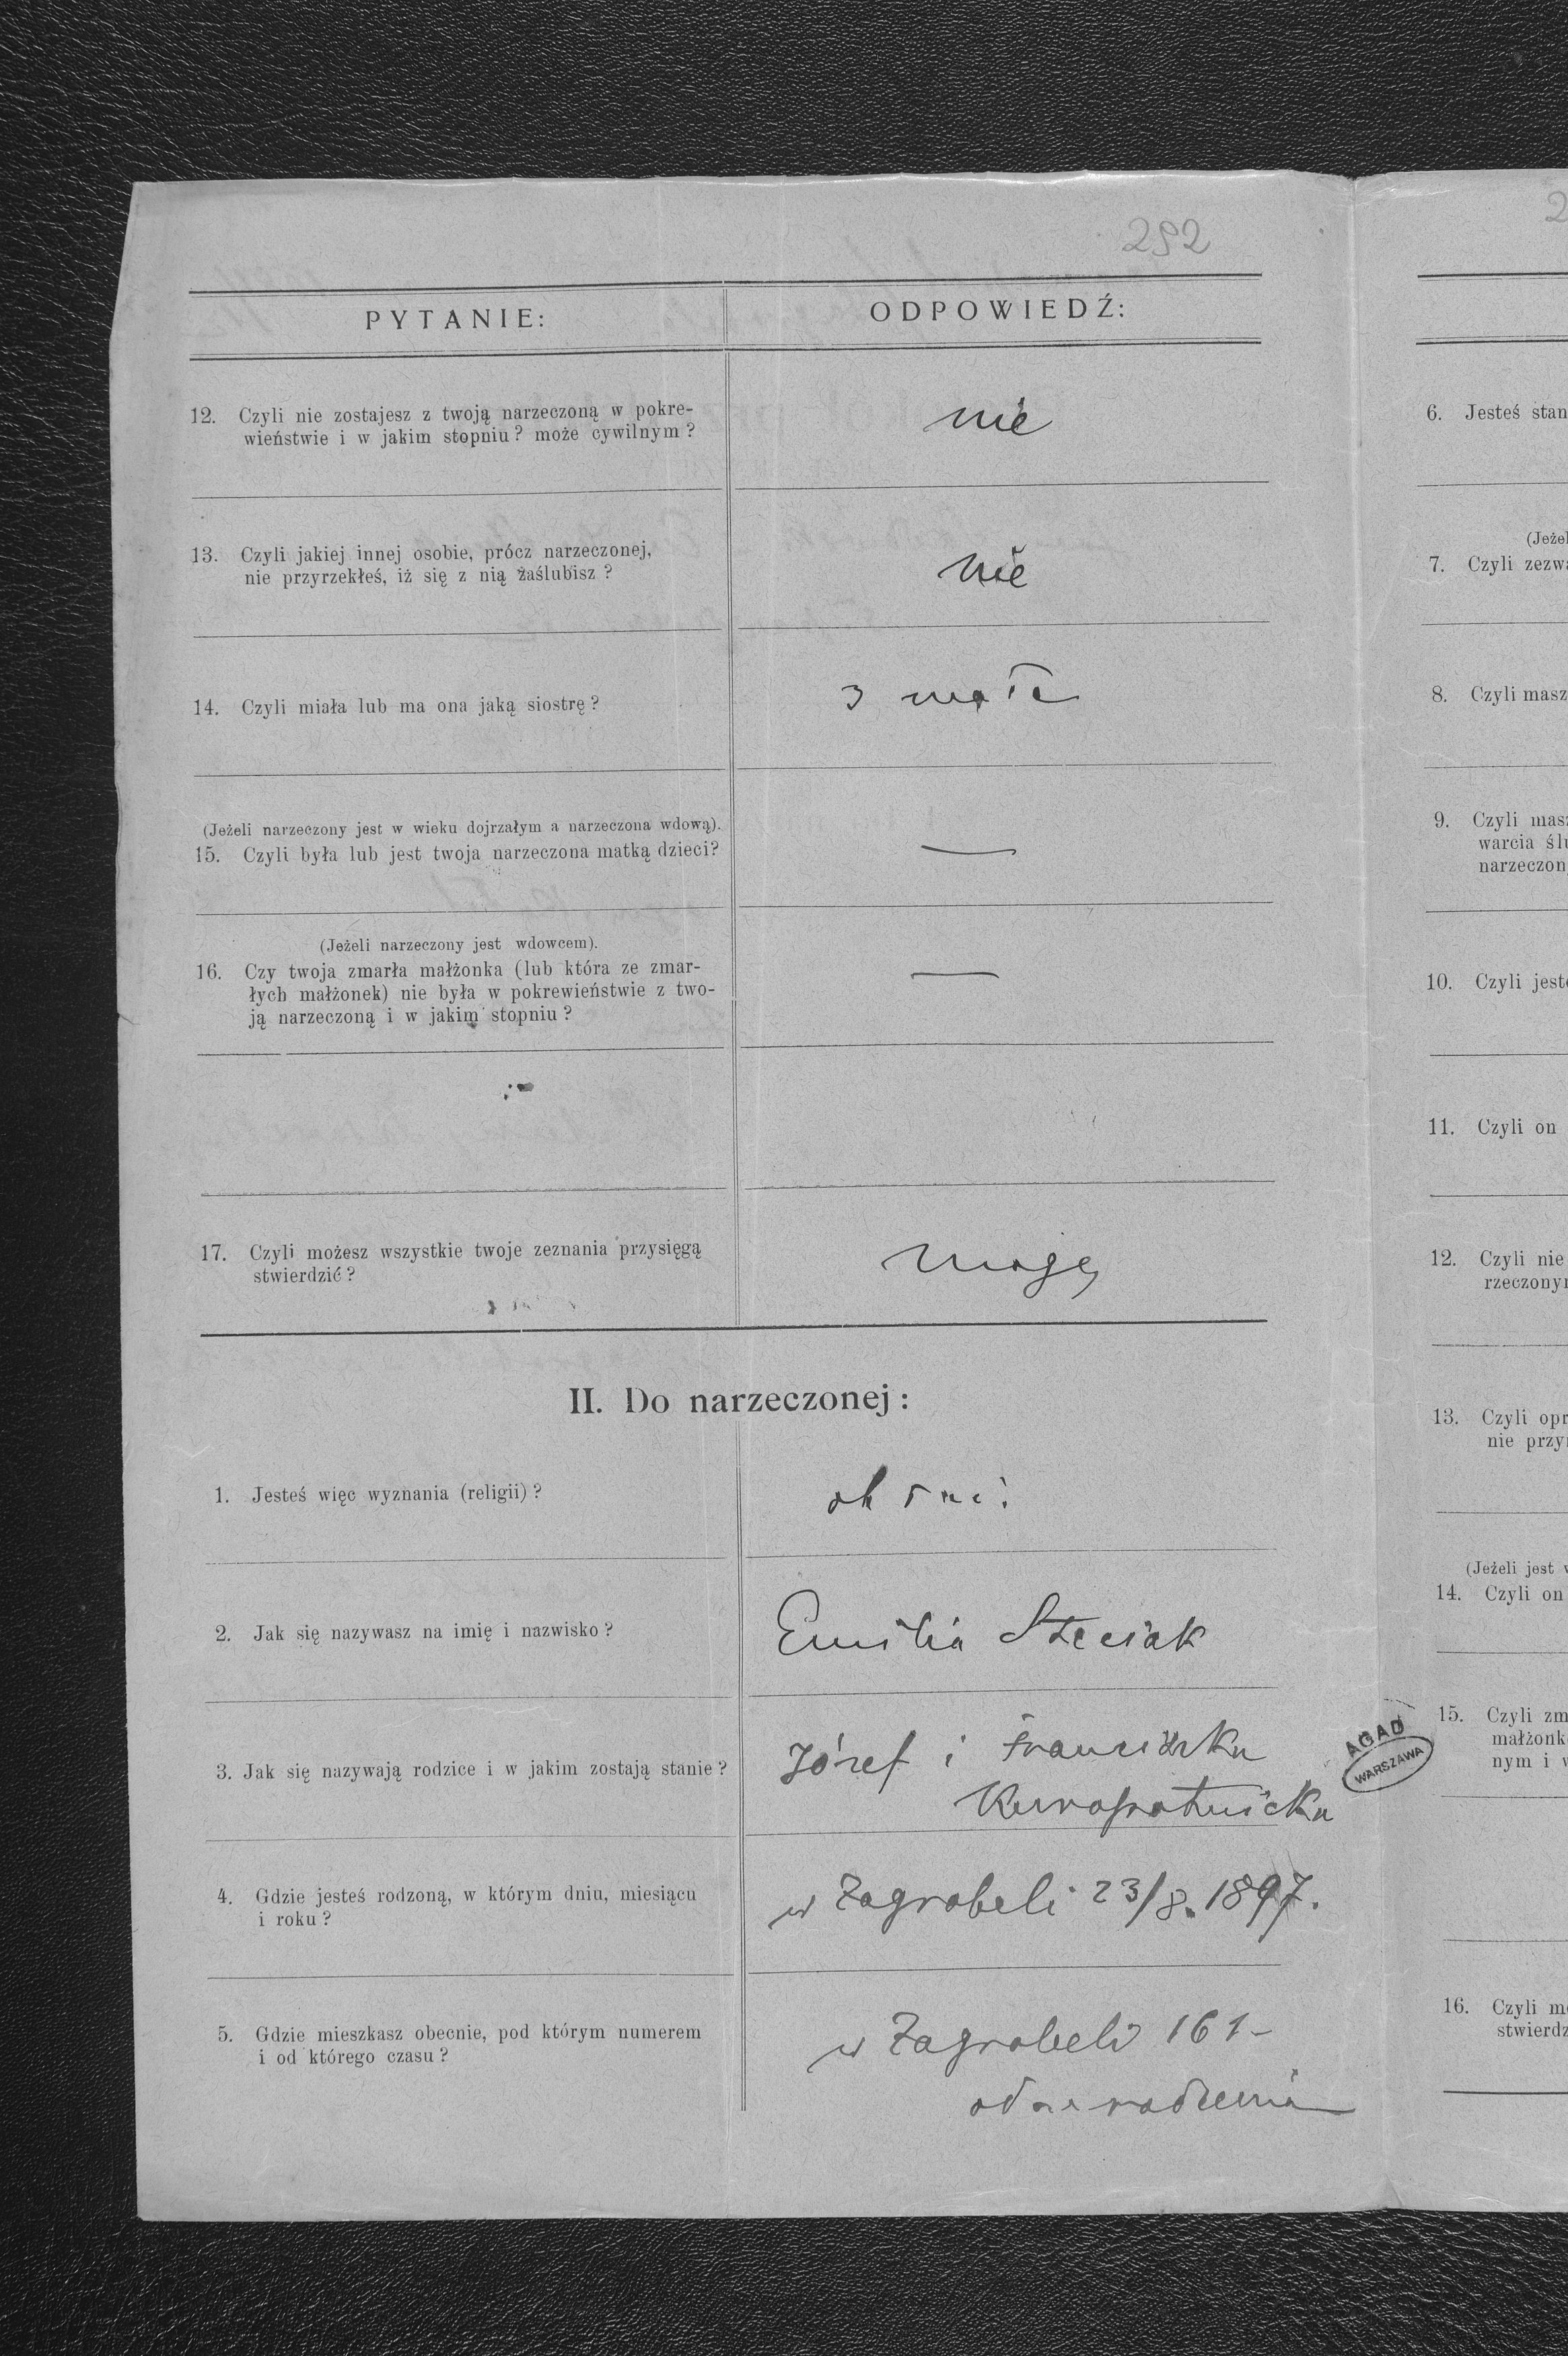 292
2
PYTANIE:
ODPOWIEDŹ:
12. Czyli nie zostajesz z twoją narzeczoną w pokre-
wieństwie i w jakim stopniu? może cywilnym?
nie
13. Czyli jakiej innej osobie, prócz narzeczonej,
nie przyrzekłeś, iż się z nią zaślubisz?
nie
14. Czyli miała lub ma ona jaką siostrę?
3 małe
(Jeżeli narzeczony jest w wieku dojrzałym a narzeczona wdową).
15. Czyli była lub jest twoja narzeczona matką dzieci?
—
(Jeżeli narzeczony jest wdowcem).
16. Czy twoja zmarła małżonka (lub która ze zmar-
łych małżonek) nie była w pokrewieństwie z two-
ją narzeczoną i w jakim stopniu?
—
17. Czyli możesz wszystkie twoje zeznania przysięgą
stwierdzić?
mogę
II. Do narzeczonej:
1. Jesteś więc wyznania (religii)?
2. Jak się nazywasz na imię i nazwisko?
Emilia Steciak
3. Jak się nazywają rodzice i w jakim zostają stanie?
Józef i Franciszka
Kuropatnicka
4. Gdzie jesteś rodzoną, w którym dniu, miesiącu
i roku?
w Zagrobeli 23/8. 1897.
5. Gdzie mieszkasz obecnie, pod którym numerem
i od którego czasu?
w Zagrobeli 161 –
od urodzenia
AGAD
WARSZAWA
6. Jesteś stan
(Jeżel
7. Czyli zezwa
8. Czyli masz
9. Czyli masz
warcia ślu
narzeczon
10. Czyli jeste
11. Czyli on
12. Czyli nie
rzeczonym
13. Czyli opr
nie przyr
(Jeżeli jest w
14. Czyli on
15. Czyli zm
małżonk
nym i w
16. Czyli mo
stwierdz